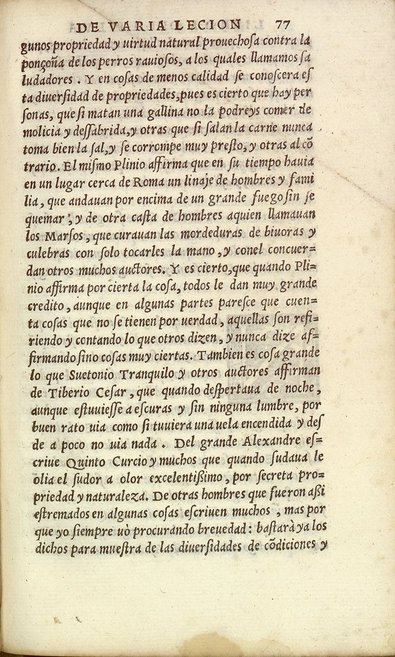 DE VARIA LECION 77
gunos propriedad y virtud natural prouechosa contra la
ponçoña de los perros rauiosos, a los quales llamamos sa
ludadores. Y en cosas de menos calidad se conoscera es
ta diuersidad de propriedades, pues es cierto que hay per
sonas, que si matan una gallina no la podreys comer de
molicia y dessabrida, y otras que si salan la carne nunca
toma bien la sal, y se corrompe muy presto, y otras al cõ
trario. El mismo Plinio affirma que en su tiempo hauia
en un lugar cerca de Roma un linaje de hombres y fami
lia, que andauan por encima de un grande fuego sin se
quemar; y de otra casta de hombres aquien llamauan
los Marsos, que curauan las mordeduras de biuoras y
culebras con solo tocarles la mano, y conel concuer=
dan otros muchos auctores. Y es cierto, que quando Pli=
nio affirma por cierta la cosa, todos le dan muy grande
credito, aunque en algunas partes paresce que cuen=
ta cosas que no se tienen por verdad, aquellas son refi=
riendo y contando lo que otros dizen, y nunca dize af=
firmando sino cosas muy ciertas. Tambien es cosa grande
lo que Suetonio Tranquilo y otros auctores affirman
de Tiberio Cesar, que quando despertaua de noche,
aunque estuuiesse a escuras y sin ninguna lumbre, por
buen rato uia como si tuuiera una uela encendida y des
de a poco no uia nada. Del grande Alexandre es=
criue Quinto Curcio y muchos que quando sudaua le
olia el sudor a olor excelentißimo, por secreta pro=
priedad y naturaleza. De otras hombres que fueron aßi
estremados en algunas cosas escriuen muchos, mas por
que yo siempre uò procurando breuedad: bastarà ya los
dichos para muestra de las diuersidades de cõdiciones y